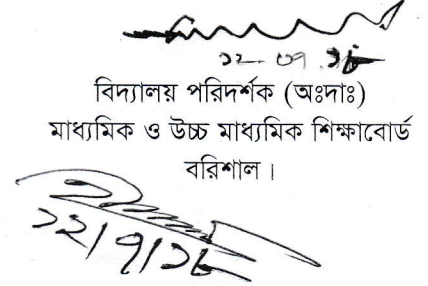 ১২.০৭.১৮
বিদ্যালয় পরিদর্শক (অঃদাঃ)
মাধ্যমিক ও উচ্চ মাধ্যমিক শিক্ষাবোর্ড
বরিশাল।
১২/৭/১৮